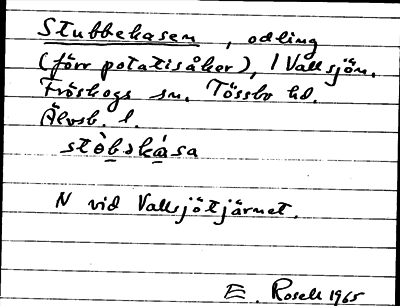 Stubbekasen, odling
(förr potatisåker), / Vallsjön.
Fröskogs sn. Tössbo hd.
Älvsb. l.
stòbskása
N vid Vallsjötjärnet.
E. Rosell 1965